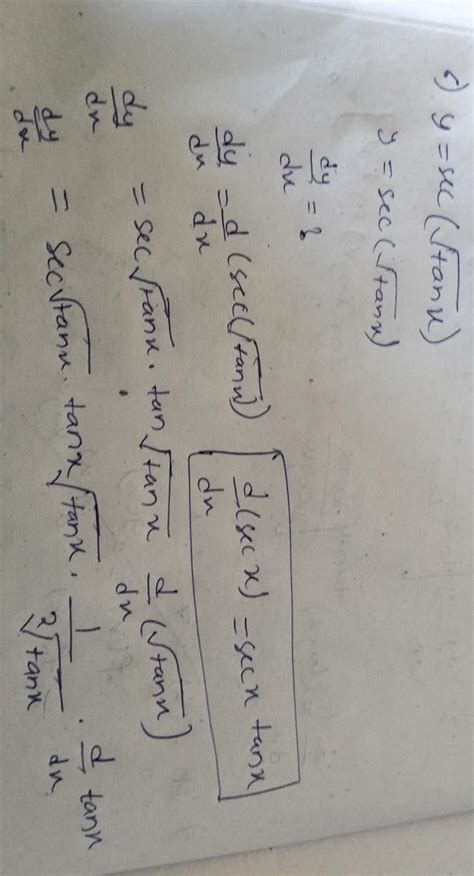 c) y = sec(√tanx)
y = sec(√tanx)
dy/dx = ?
dy/dx = d/dx (sec(√tanx)) d/dx (sec x) = sec x tanx
dy/dx = sec√tanx . tan√tanx d/dx (√tanx)
dy/dx = sec√tanx . tanx√tanx . 1/2√tanx . d/dx tanx